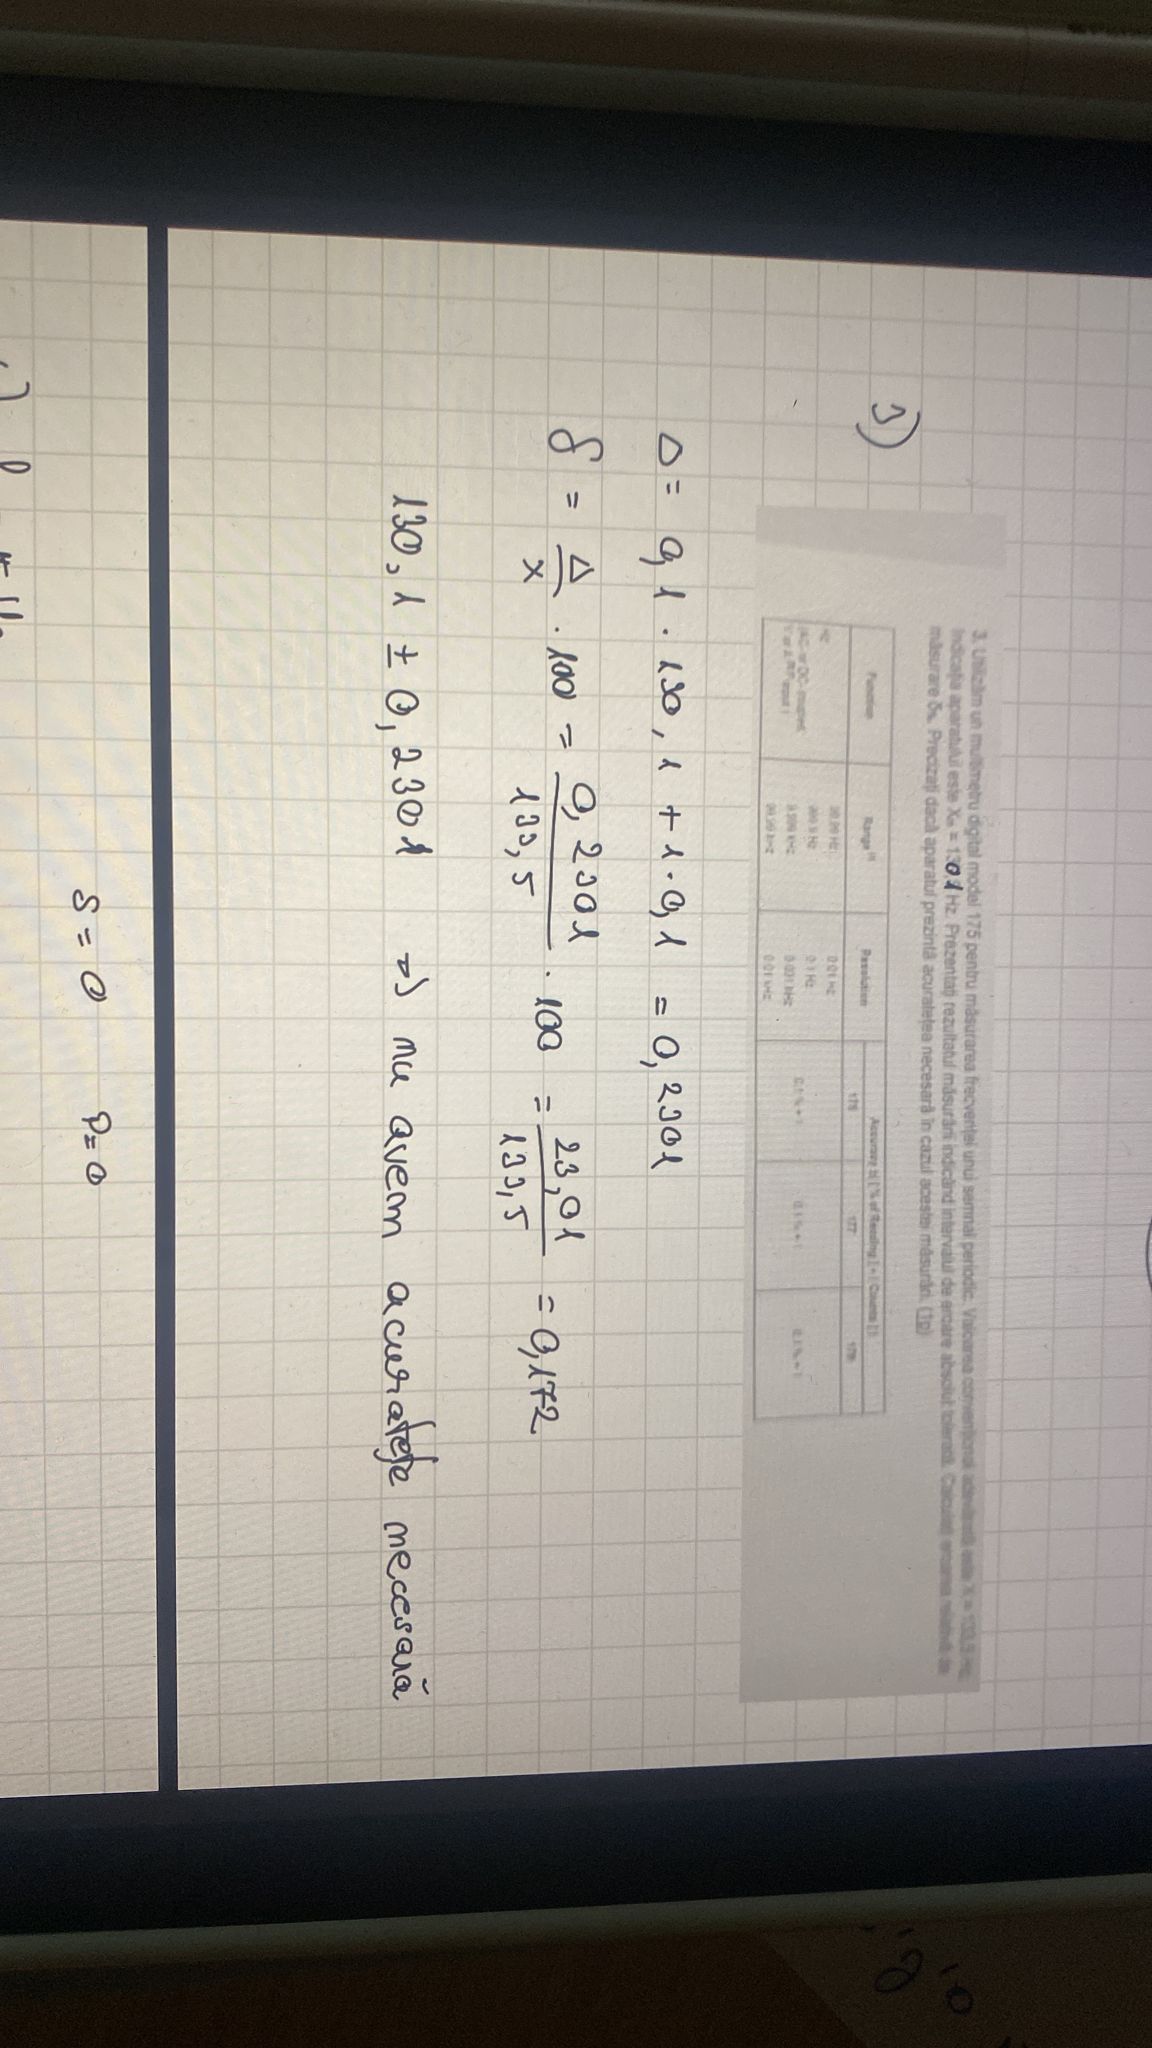 3)
3. Utilizăm un multimetru digital model 175 pentru măsurarea frecvenței unui semnal periodic. Valoarea convențional adevărată este X = 133,5 Hz.
Indicația aparatului este Xm = 130,1 Hz. Prezentați rezultatul măsurării indicând intervalul de eroare absolut tolerată. Calculați eroarea relativă de
măsurare δ%. Precizați dacă aparatul prezintă acuratețea necesară în cazul acestei măsurări. (1p)
Function Range Resolution Accuracy ±([ % of Reading ] + [ Counts ])
175 177 179
99.99 Hz 0.01 Hz
Hz 999.9 Hz 0.1 Hz
(AC- or DC-coupled, 9.999 kHz 0.001 kHz 0.1 % + 1 0.1 % + 1 0.1 % + 1
99.99 kHz 0.01 kHz
Δ = 0,1 · 130,1 + 1 · 0,1 = 0,2301
δ = Δ/x · 100 = 0,2301/133,5 · 100 = 23,01/133,5 = 0,172
130,1 ± 0,2301 => nu avem acuratețe necesară
S = 0 P = 0